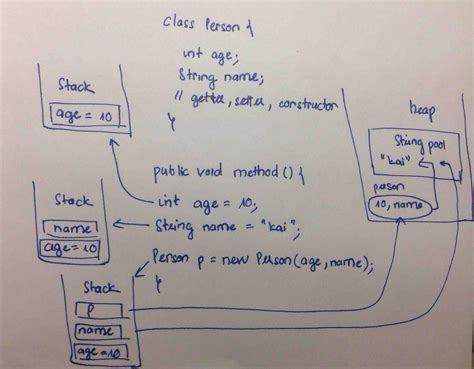 class Person {
int age;
String name;
// getter, setter, constructor
}
Stack
age = 10
public void method () {
int age = 10;
String name = "kai";
Person p = new Person(age, name);
}
Stack
name
age = 10
Stack
p
name
age = 10
heap
String pool
"kai"
person
10, name